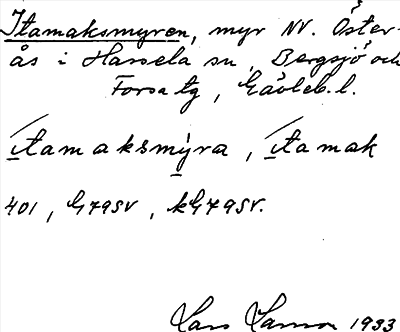 Itamaksmyren, myr NV. Öster-
ås i Hassela sn, Bergsjö och
Forsa tg, Gävleb. l.
ítamaksmyra, ítamak
401, G79SV, kG79SV.
Lars 1933